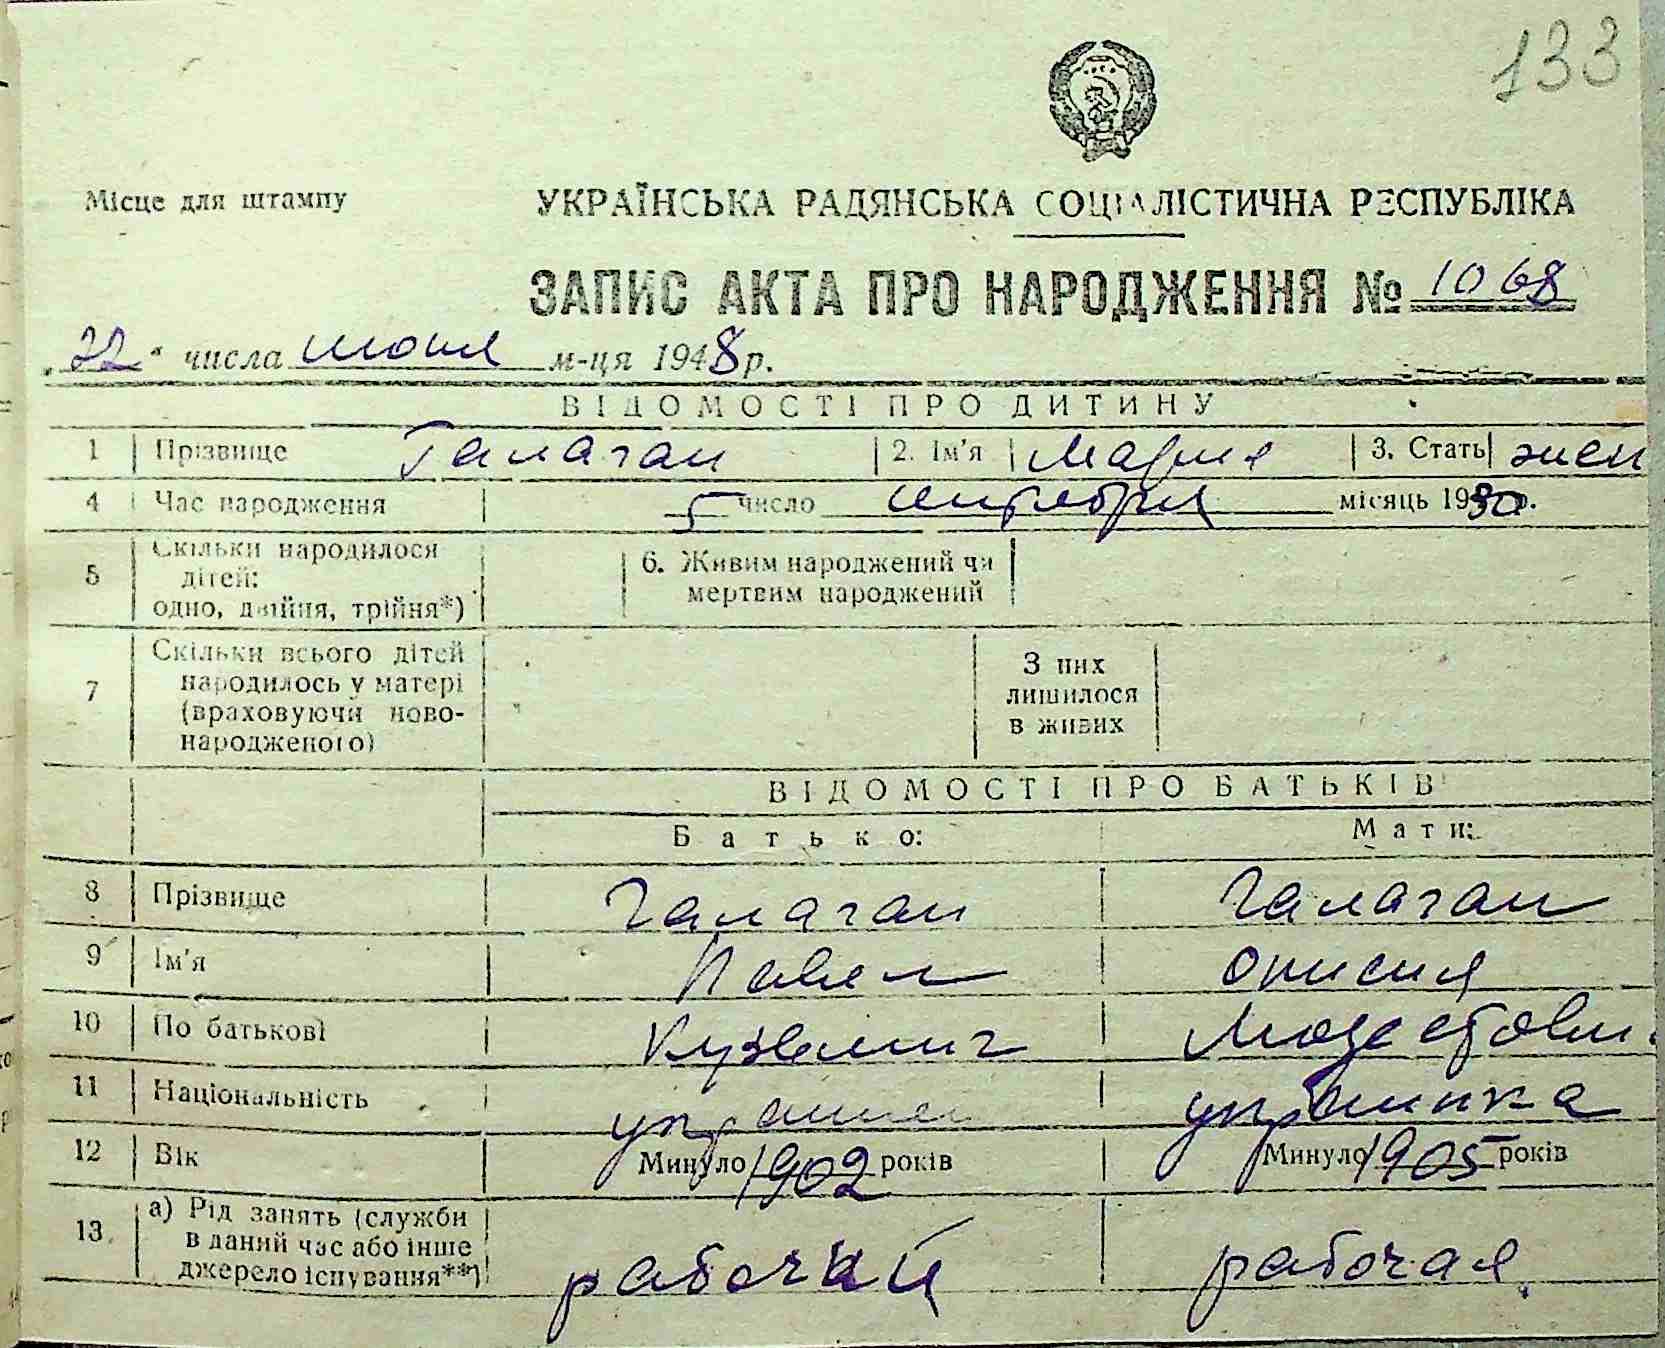 133
Місце для штампу
УКРАЇНСЬКА РАДЯНСЬКА СОЦІАЛІСТИЧНА РЕСПУБЛІКА
ЗАПИС АКТА ПРО НАРОДЖЕННЯ № 1068
„22“ числа июня м-ця 1948 р.
ВІДОМОСТІ ПРО ДИТИНУ
1 Прізвище Галаган 2. Ім'я Мария 3. Стать жен
4 Час народження 5 число сентября місяць 1930 р.
5 Скільки народилося дітей: одно, двійня, трійня*) 6. Живим народжений чи мертвим народжений
7 Скільки всього дітей народилось у матері (враховуючи ново-народженого) З них лишилося в живих
ВІДОМОСТІ ПРО БАТЬКІВ
Батько: Мати:
8 Прізвище Галаган Галаган
9 Ім'я Павел Онисия
10 По батькові Кузьмич Модестовн.
11 Національність украинец украинка
12 Вік Минуло 1902 років Минуло 1905 років
13. а) Рід занять (служби в даний час або інше джерело існування**) рабочий рабочая